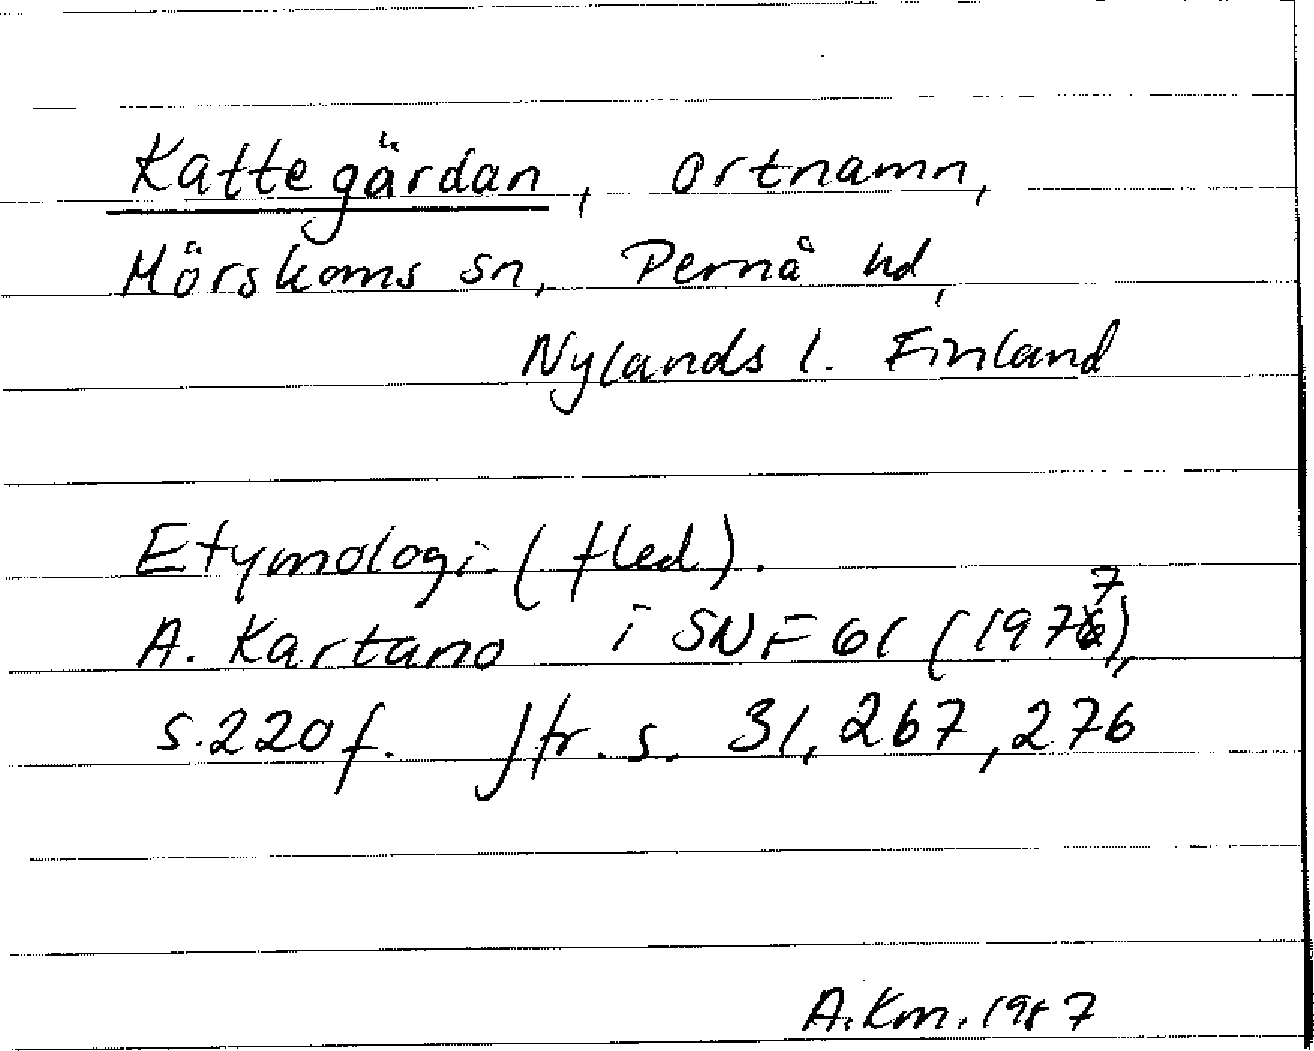 Kattegärdan, ortnamn,
Mörskoms sn, Pernå hd,
Nylands l. Finland
Etymologi (fled).
A. Kartano i SNF 61 (1977),
s. 220 f. Jfr. s. 31, 267, 276
A. Km. 1987